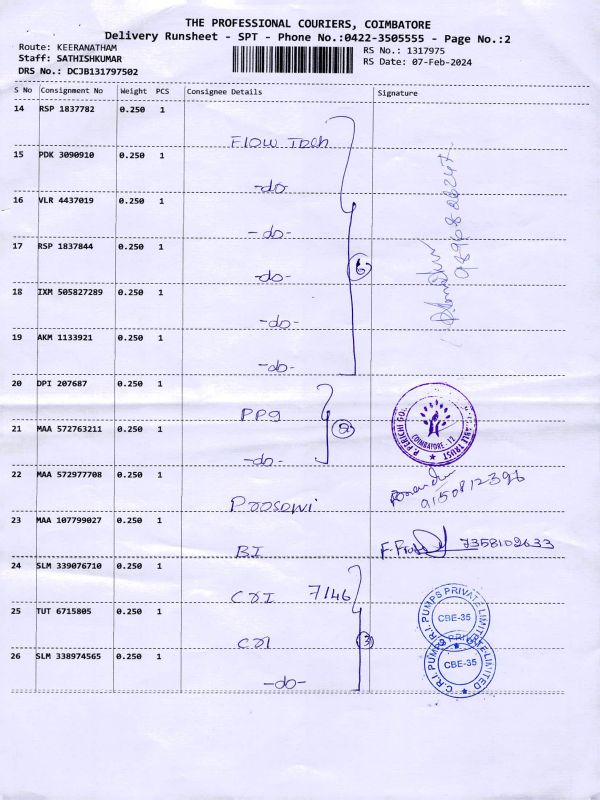 THE PROFESSIONAL COURIERS, COIMBATORE
Delivery Runsheet - SPT - Phone No.:0422-3505555 - Page No.:2
Route: KEERANATHAM
Staff: SATHISHKUMAR
DRS No.: DCJB131797502
RS No.: 1317975
RS Date: 07-Feb-2024
S No Consignment No Weight PCS Consignee Details Signature
14 RSP 1837782 0.250 1
Flow Tech
15 PDK 3090910 0.250 1
-do-
16 VLR 4437019 0.250 1
-do-
17 RSP 1837844 0.250 1
-do-
6
18 IXM 505827289 0.250 1
-do-
19 AKM 1133921 0.250 1
-do-
20 DPI 207687 0.250 1
PPg
21 MAA 572763211 0.250 1
-do-
2
COIMBATORE - 12
22 MAA 572977708 0.250 1
9150812396
23 MAA 107799027 0.250 1
BI
7358102633
24 SLM 339076710 0.250 1
CRI 7146
25 TUT 6715805 0.250 1
CRI
3
C.R.I. PUMPS PRIVATE LIMITED
CBE-35
26 SLM 338974565 0.250 1
-do-
C.R.I. PUMPS PRIVATE LIMITED
CBE-35